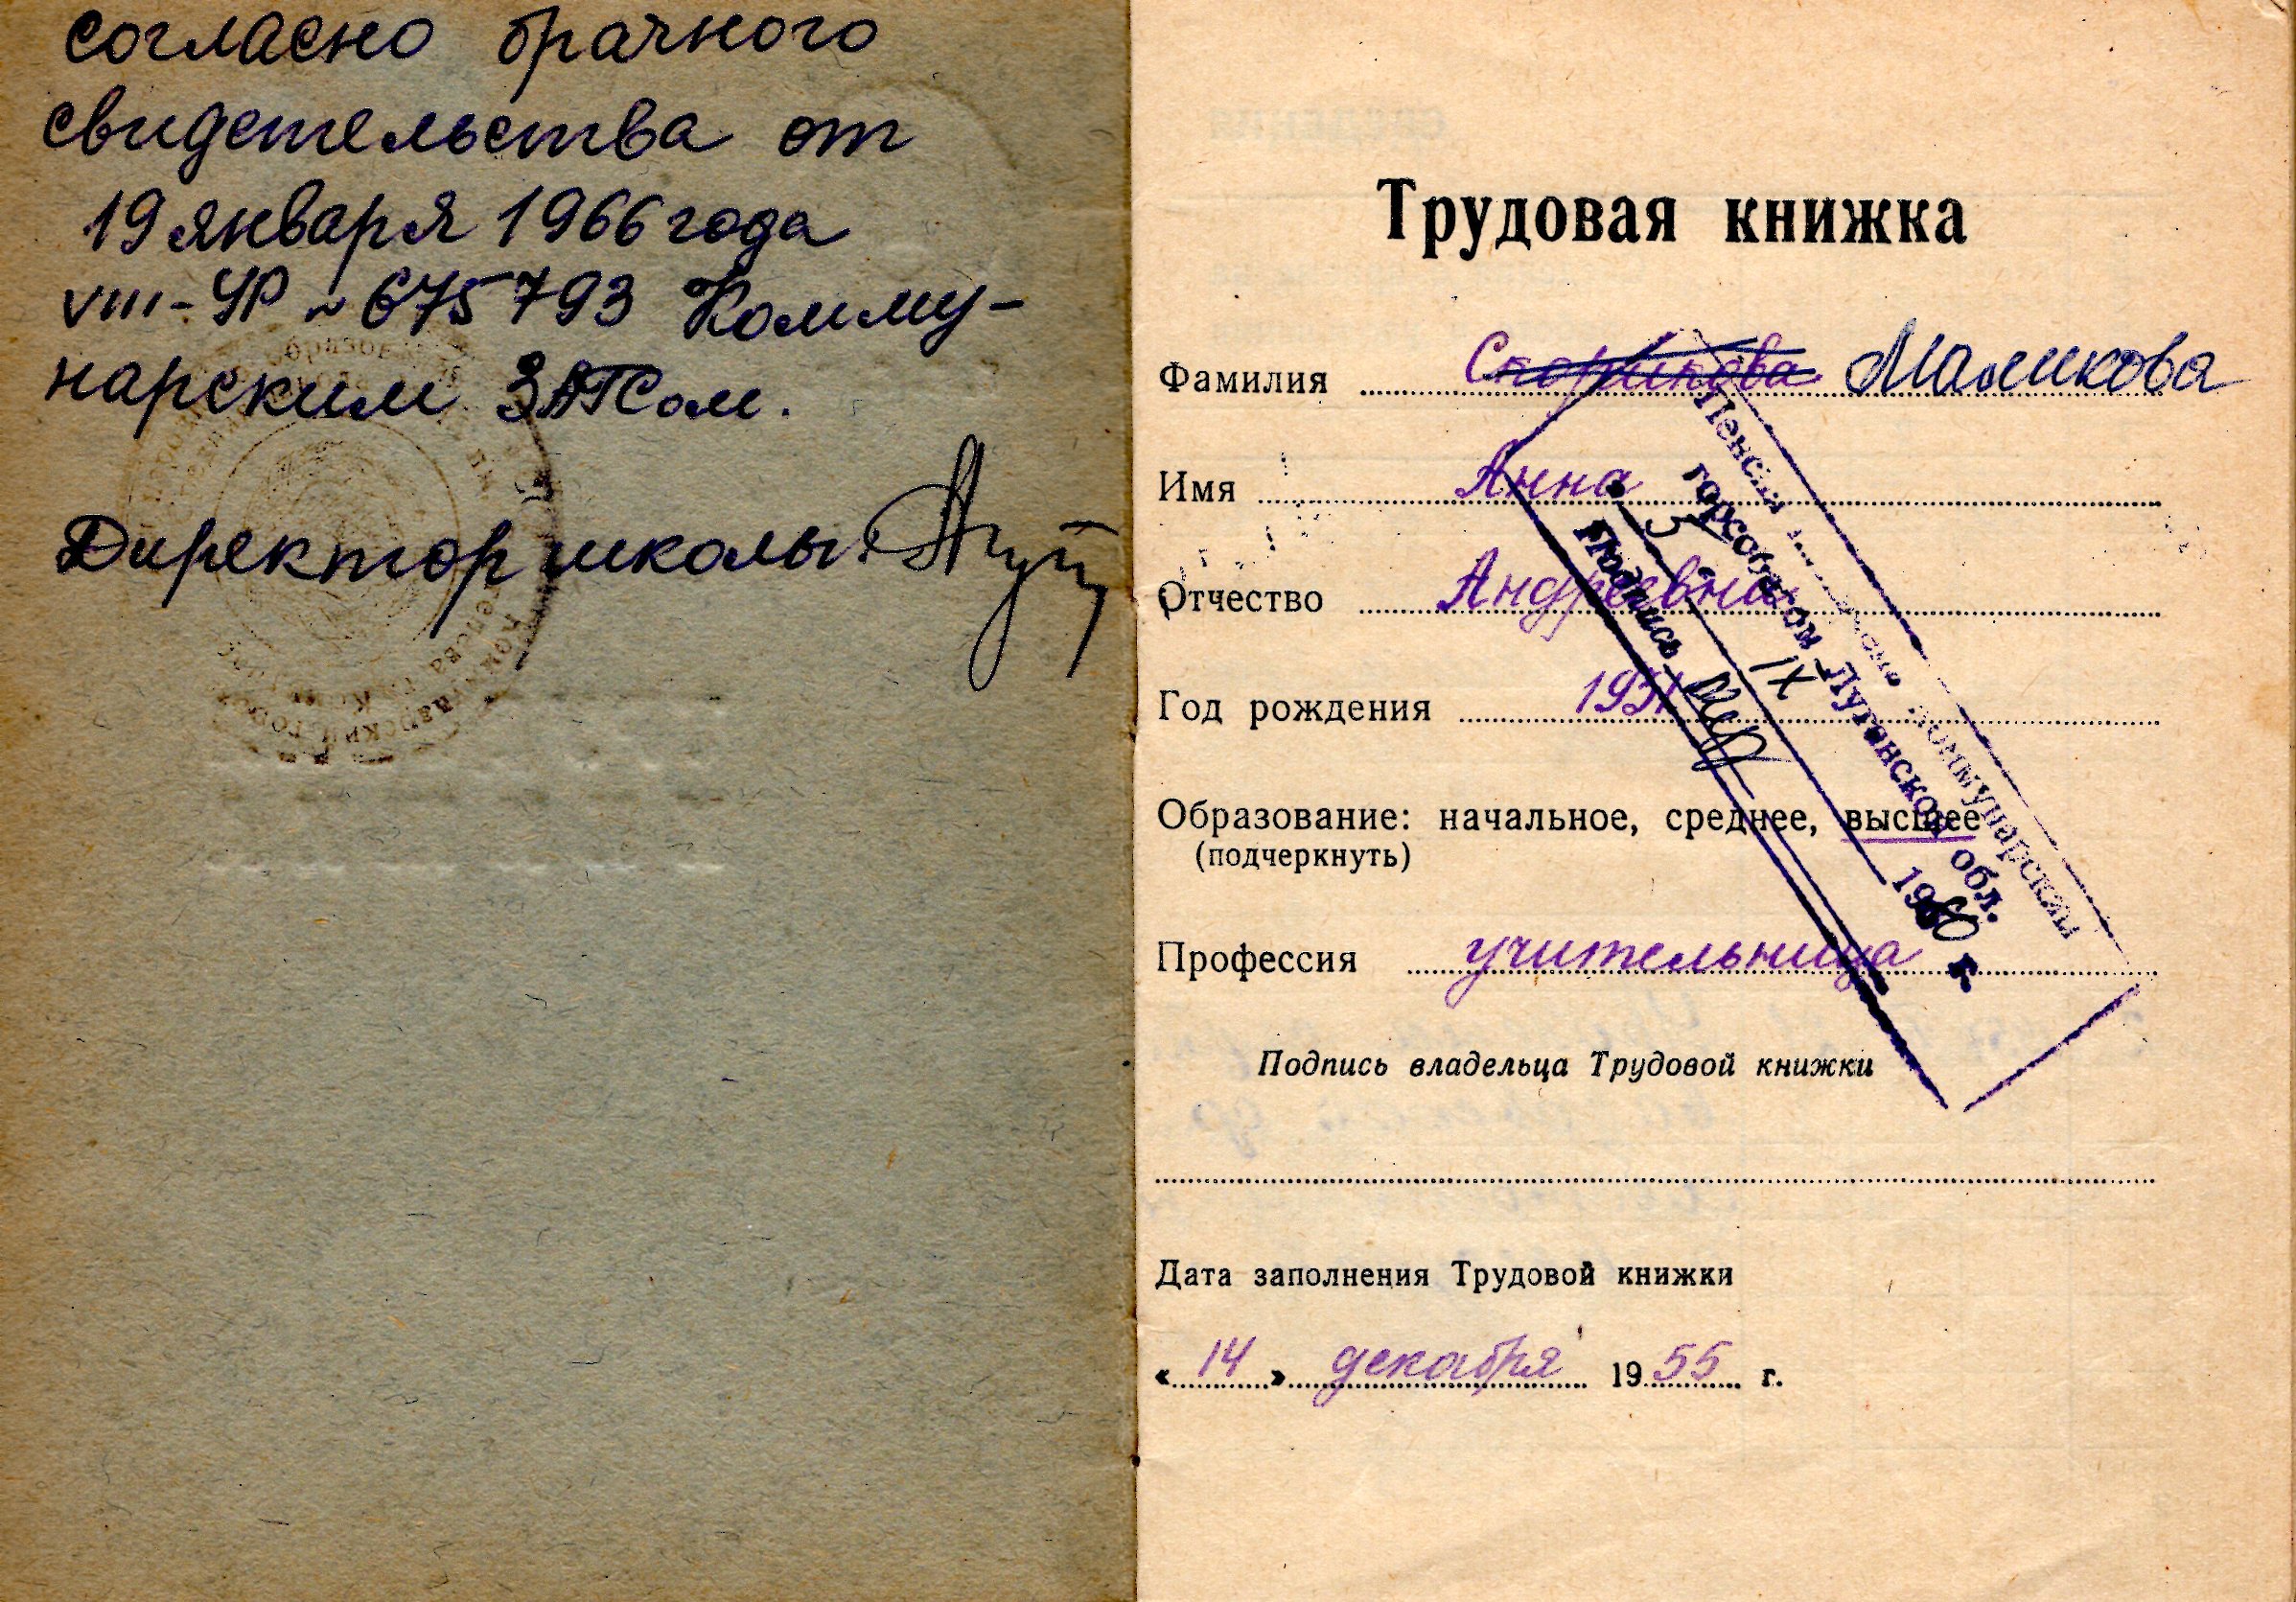 согласно брачного
свидетельства от
19 января 1966 года
VIII-УР № 675793 Комму-
нарским ЗАГСом.
Директор школы
Трудовая книжка
Фамилия Маликова
Имя Анна
Отчество Андреевна
Год рождения
Образование: начальное, среднее, высшее
(подчеркнуть)
Профессия учительница
Подпись владельца Трудовой книжки
Дата заполнения Трудовой книжки
« 14 » декабря 19 55 г.
Коммунарским
горсобесом Луганской обл.
5 IX 1960 г.
Подпись